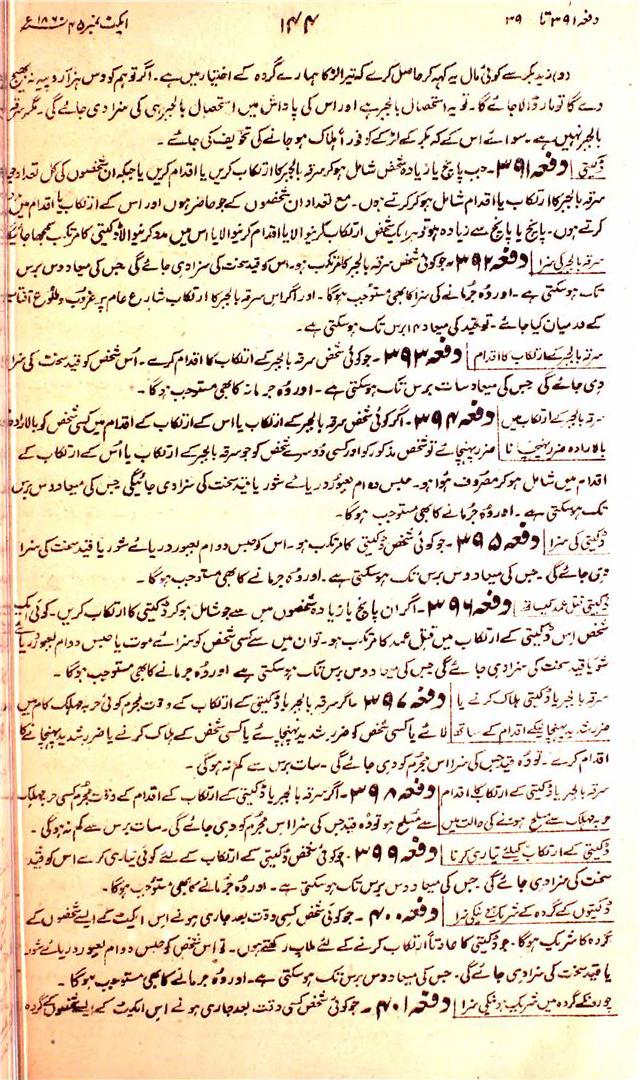 دفعہ ۳۹۱ تا ۳۹ ۱۴۴ ایکٹ نمبر ۴۵ ۱۸۶۰ء
(د) زید بکر سے کوئی مال یہ کہہ کر حاصل کرے کہ تیرا لڑکا ہمارے گروہ کے اختیار میں ہے۔ اگر تو ہم کو دس ہزار روپیہ نہ بھیج
دے گا تو مار ڈالا جائے گا۔ تو یہ استحصال بالجبر ہے اور اس کی پاداش میں استحصال بالجبر ہی کی سزا دی جائے گی۔ مگر سرقہ
بالجبر نہیں ہے۔ سوائے اس کے کہ بکر کے لڑکے کو فوراً ہلاک ہو جانے کی تخویف کی جائے۔
ڈکیتی دفعہ ۳۹۱۔ جب پانچ یا زیادہ شخص شامل ہو کر سرقہ بالجبر کا ارتکاب کریں یا اقدام کریں یا جبکہ ان شخصوں کی کل تعداد جو
سرقہ بالجبر کا ارتکاب یا اقدام شامل ہو کر کرتے ہوں۔ مع تعداد ان شخصوں کے جو حاضر ہوں اور اس کے ارتکاب یا اقدام میں
کرتے ہوں۔ پانچ یا پانچ سے زیادہ ہو تو ہر ایک شخص ارتکاب کرنیوالا یا اقدام کرنیوالا یا اس میں مدد کرنیوالا ڈکیتی کا مرتکب سمجھا جائیگا
سرقہ بالجبر کی سزا دفعہ ۳۹۲۔ جو کوئی شخص سرقہ بالجبر کا مرتکب ہو۔ اس کو قید سخت کی سزا دی جائے گی جس کی میعاد دس برس
تک ہو سکتی ہے۔ اور وہ جرمانے کی سزا کا بھی مستوجب ہوگا۔ اور اگر اس سرقہ بالجبر کا ارتکاب شارع عام پر غروب و طلوع آفتاب
کے درمیان کیا جائے۔ تو قید کی میعاد ۱۴ برس تک ہو سکتی ہے۔
سرقہ بالجبر کے ارتکاب کا اقدام دفعہ ۳۹۳۔ جو کوئی شخص سرقہ بالجبر کے ارتکاب کا اقدام کرے۔ اُس شخص کو قید سخت کی سزا
دی جائے گی جس کی میعاد سات برس تک ہو سکتی ہے۔ اور وہ جرمانہ کا بھی مستوجب ہوگا۔
سرقہ بالجبر کے ارتکاب میں دفعہ ۳۹۴۔ اگر کوئی شخص سرقہ بالجبر کے ارتکاب یا اس کے ارتکاب کے اقدام میں کسی شخص کو بالارادہ
بالارادہ ضرر پہنچانا ضرر پہنچائے تو شخص مذکور کو اور کسی دوسرے شخص کو جو سرقہ بالجبر کے ارتکاب یا اُس کے ارتکاب کے
اقدام میں شامل ہو کر مصروف ہوا ہو۔ حبس دوام بعبور دریائے شور یا قید سخت کی سزا دی جائیگی جس کی میعاد دس برس
تک ہو سکتی ہے۔ اور وہ جرمانے کا بھی مستوجب ہوگا۔
ڈکیتی کی سزا دفعہ ۳۹۵۔ جو کوئی شخص ڈکیتی کا مرتکب ہو۔ اس کو حبس دوام بعبور دریائے شور یا قید سخت کی سزا
دی جائے گی۔ جس کی میعاد دس برس تک ہو سکتی ہے۔ اور وہ جرمانے کا بھی مستوجب ہوگا۔
ڈکیتی قتل عمد کیساتھ دفعہ ۳۹۶۔ اگر ان پانچ یا زیادہ شخصوں میں سے جو شامل ہو کر ڈکیتی کا ارتکاب کریں۔ کوئی ایک
شخص اس ڈکیتی کے ارتکاب میں قتل عمد کا مرتکب ہو۔ تو ان میں سے کسی شخص کو سزائے موت یا حبس دوام بعبور دریائے
شور یا قید سخت کی سزا دی جائے گی جس کی میعاد دس برس تک ہو سکتی ہے اور وہ جرمانے کا بھی مستوجب ہوگا۔
سرقہ بالجبر یا ڈکیتی ہلاک کرنے یا دفعہ ۳۹۷۔ اگر سرقہ بالجبر یا ڈکیتی کے ارتکاب کے وقت مجرم کوئی حربہ مہلک کام میں
ضرر شدید پہنچانیکے اقدام کے ساتھ لائے یا کسی شخص کو ضرر شدید پہنچائے یا کسی شخص کے ہلاک کرنے یا ضرر شدید پہنچانے کا
اقدام کرے۔ تو وہ قید جس کی سزا اس مجرم کو دی جائے گی۔ سات برس سے کم نہ ہوگی۔
سرقہ بالجبر یا ڈکیتی کے ارتکاب کا اقدام دفعہ ۳۹۸۔ اگر سرقہ بالجبر یا ڈکیتی کے ارتکاب کے اقدام کے وقت مجرم کسی حربہ مہلک
حربہ مہلک سے مسلح ہونے کی حالت میں سے مسلح ہو تو وہ قید جس کی سزا اس مجرم کو دی جائے گی۔ سات برس سے کم نہ ہوگی۔
ڈکیتی کے ارتکاب کیلئے تیاری کرنا دفعہ ۳۹۹۔ جو کوئی شخص ڈکیتی کے ارتکاب کے لئے کوئی تیاری کرے اس کو قید
سخت کی سزا دی جائے گی جس کی میعاد دس برس تک ہو سکتی ہے۔ اور وہ جرمانے کا بھی مستوجب ہوگا۔
ڈکیتوں کے گروہ کے شریک ہونیکی سزا دفعہ ۴۰۰۔ جو کوئی شخص کسی وقت بعد جاری ہونے اس ایکٹ کے ایسے شخصوں کے
گروہ کا شریک ہوگا۔ جو ڈکیتی کا عادتاً ارتکاب کرنے کے لئے ملاپ رکھتے ہوں۔ تو اس شخص کو حبس دوام بعبور دریائے شور
یا قید سخت کی سزا دی جائے گی۔ جس کی میعاد دس برس تک ہو سکتی ہے۔ اور وہ جرمانے کا بھی مستوجب ہوگا۔
چوروں کے گروہ میں شریک ہونیکی سزا دفعہ ۴۰۱۔ جو کوئی شخص کسی وقت بعد جاری ہونے اس ایکٹ کے ایسے شخصوں کے گروہ